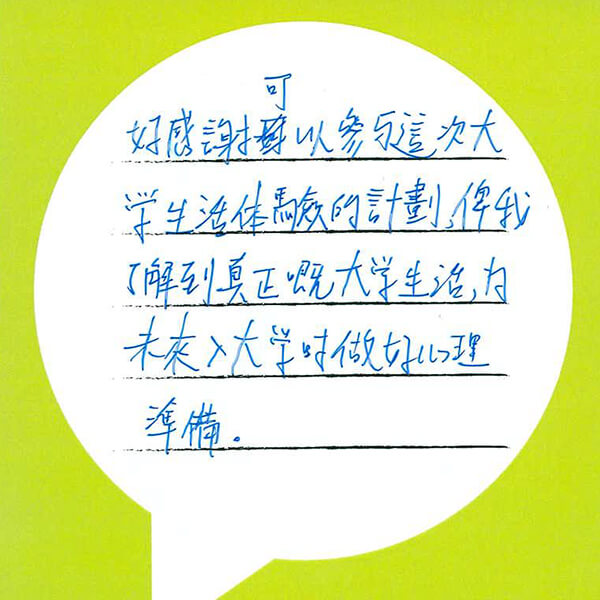 好感謝可以參与這次大
学生活体驗的計劃,俾我
了解到真正嘅大学生活,为
未來入大学时做好心理
準備。